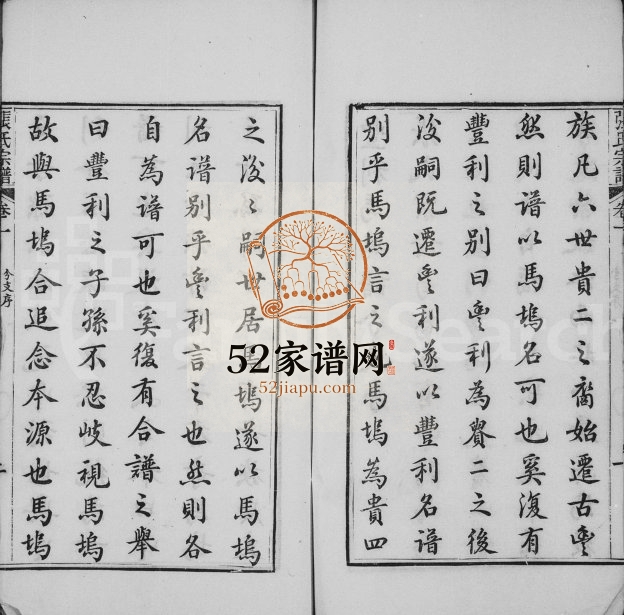 張氏宗譜
卷一
族凡六世貴二之裔始遷古豊
然則譜以馬塢名可也奚復有
豐利之別曰豊利為貴二之後
後嗣既遷豊利遂以豐利名譜
別乎馬塢言之馬塢為貴四
之後々嗣世居馬塢遂以馬塢
名譜別乎豊利言之也然則各
自為譜可也奚復有合譜之舉
曰豐利之子孫不忍歧視馬塢
故與馬塢合追念本源也馬塢
張氏宗譜
卷一
分支序
52家谱网
52jiapu.com